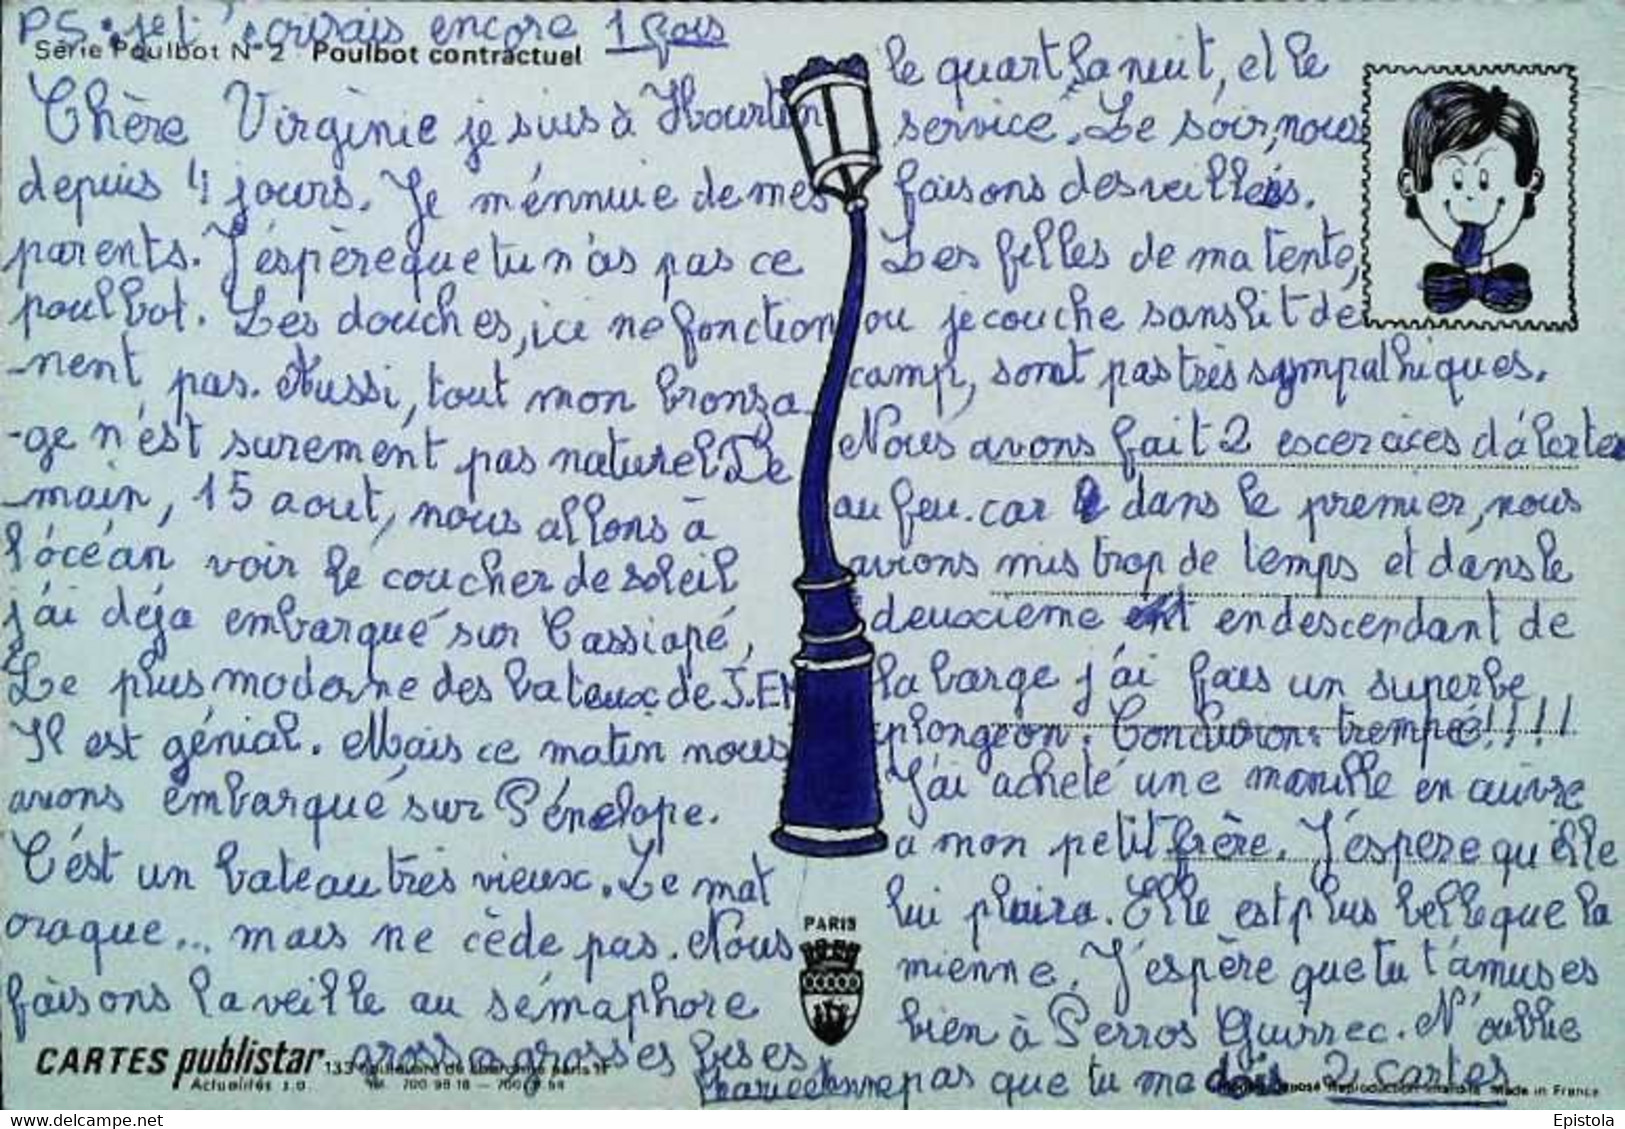 PS: je t'écrirais encore 1 fois
Série Poulbot N° 2 Poulbot contractuel
Chère Virginie je suis à Hourtin
depuis 4 jours. Je m'énnuie de mes
parents. J'éspère que tu n'as pas ce
poulbot. Les douches, ici ne fonction
-nent pas. Aussi, tout mon bronza
-ge n'est surement pas naturel De
-main, 15 aout, nous allons à
l'océan voir le coucher de soleil
j'ai déja embarqué sur Cassiopé,
Le plus moderne des bateaux de J.EM
Il est génial. Mais ce matin nous
avions embarqué sur Pénélope.
C'est un bateau très vieux. Le mat
craque... mais ne cède pas. Nous
faisons la veille au sémaphore
le quart la nuit, et le
service. Le soir, nous
faisons des veillées.
Les filles de ma tente,
ou je couche sans lit de
camp, sont pas très sympathiques.
Nous avons fait 2 escercices d'alertes
au feu. car dans le premier, nous
avions mis trop de temps et dans le
deuxieme en descendant de
la barge j'ai fais un superbe
plongeon. Conclusion: trempé!!!!
J'ai acheté une manille en cuivre
a mon petit frère. J'éspere qu'elle
lui plaira. Elle est plus belle que la
mienne. J'espère que tu t'amuses
bien à Perros Guirrec. N'oublie
pas que tu me dois 2 cartes
grosses grosses bises
PARIS
CARTES publistar
Actualités s.a.
Made in France
Epistola